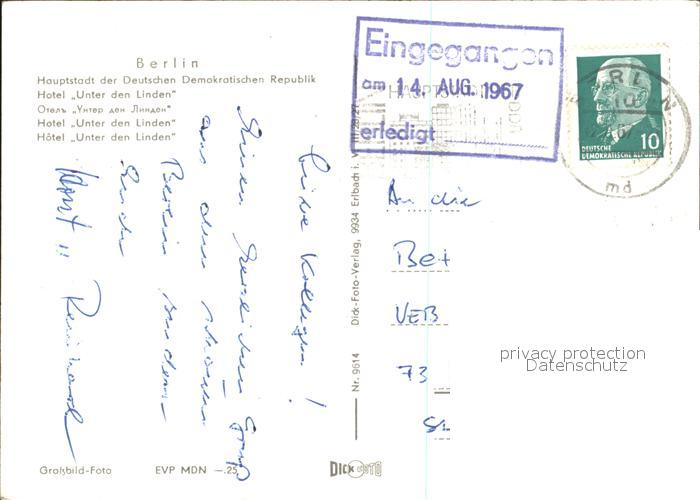 Berlin
Hauptstadt der Deutschen Demokratischen Republik
Hotel „Unter den Linden“
Отель „Унтер ден Линден“
Hotel „Unter den Linden“
Hôtel „Unter den Linden“
Liebe Kollegen!
Einen herzlichen Gruß
aus dem schönen
Berlin senden
Euch
Horst u.
Großbild-Foto
EVP MDN —.25
Nr. 9614
Dick-Foto-Verlag, 9934 Erlbach i. V.
DICK FOTO
Eingegangen
am 14. AUG. 1967
erledigt
BERLIN
md
10
DEUTSCHE
DEMOKRATISCHE REPUBLIK
An die
Bet
VEB
73
privacy protection
Datenschutz